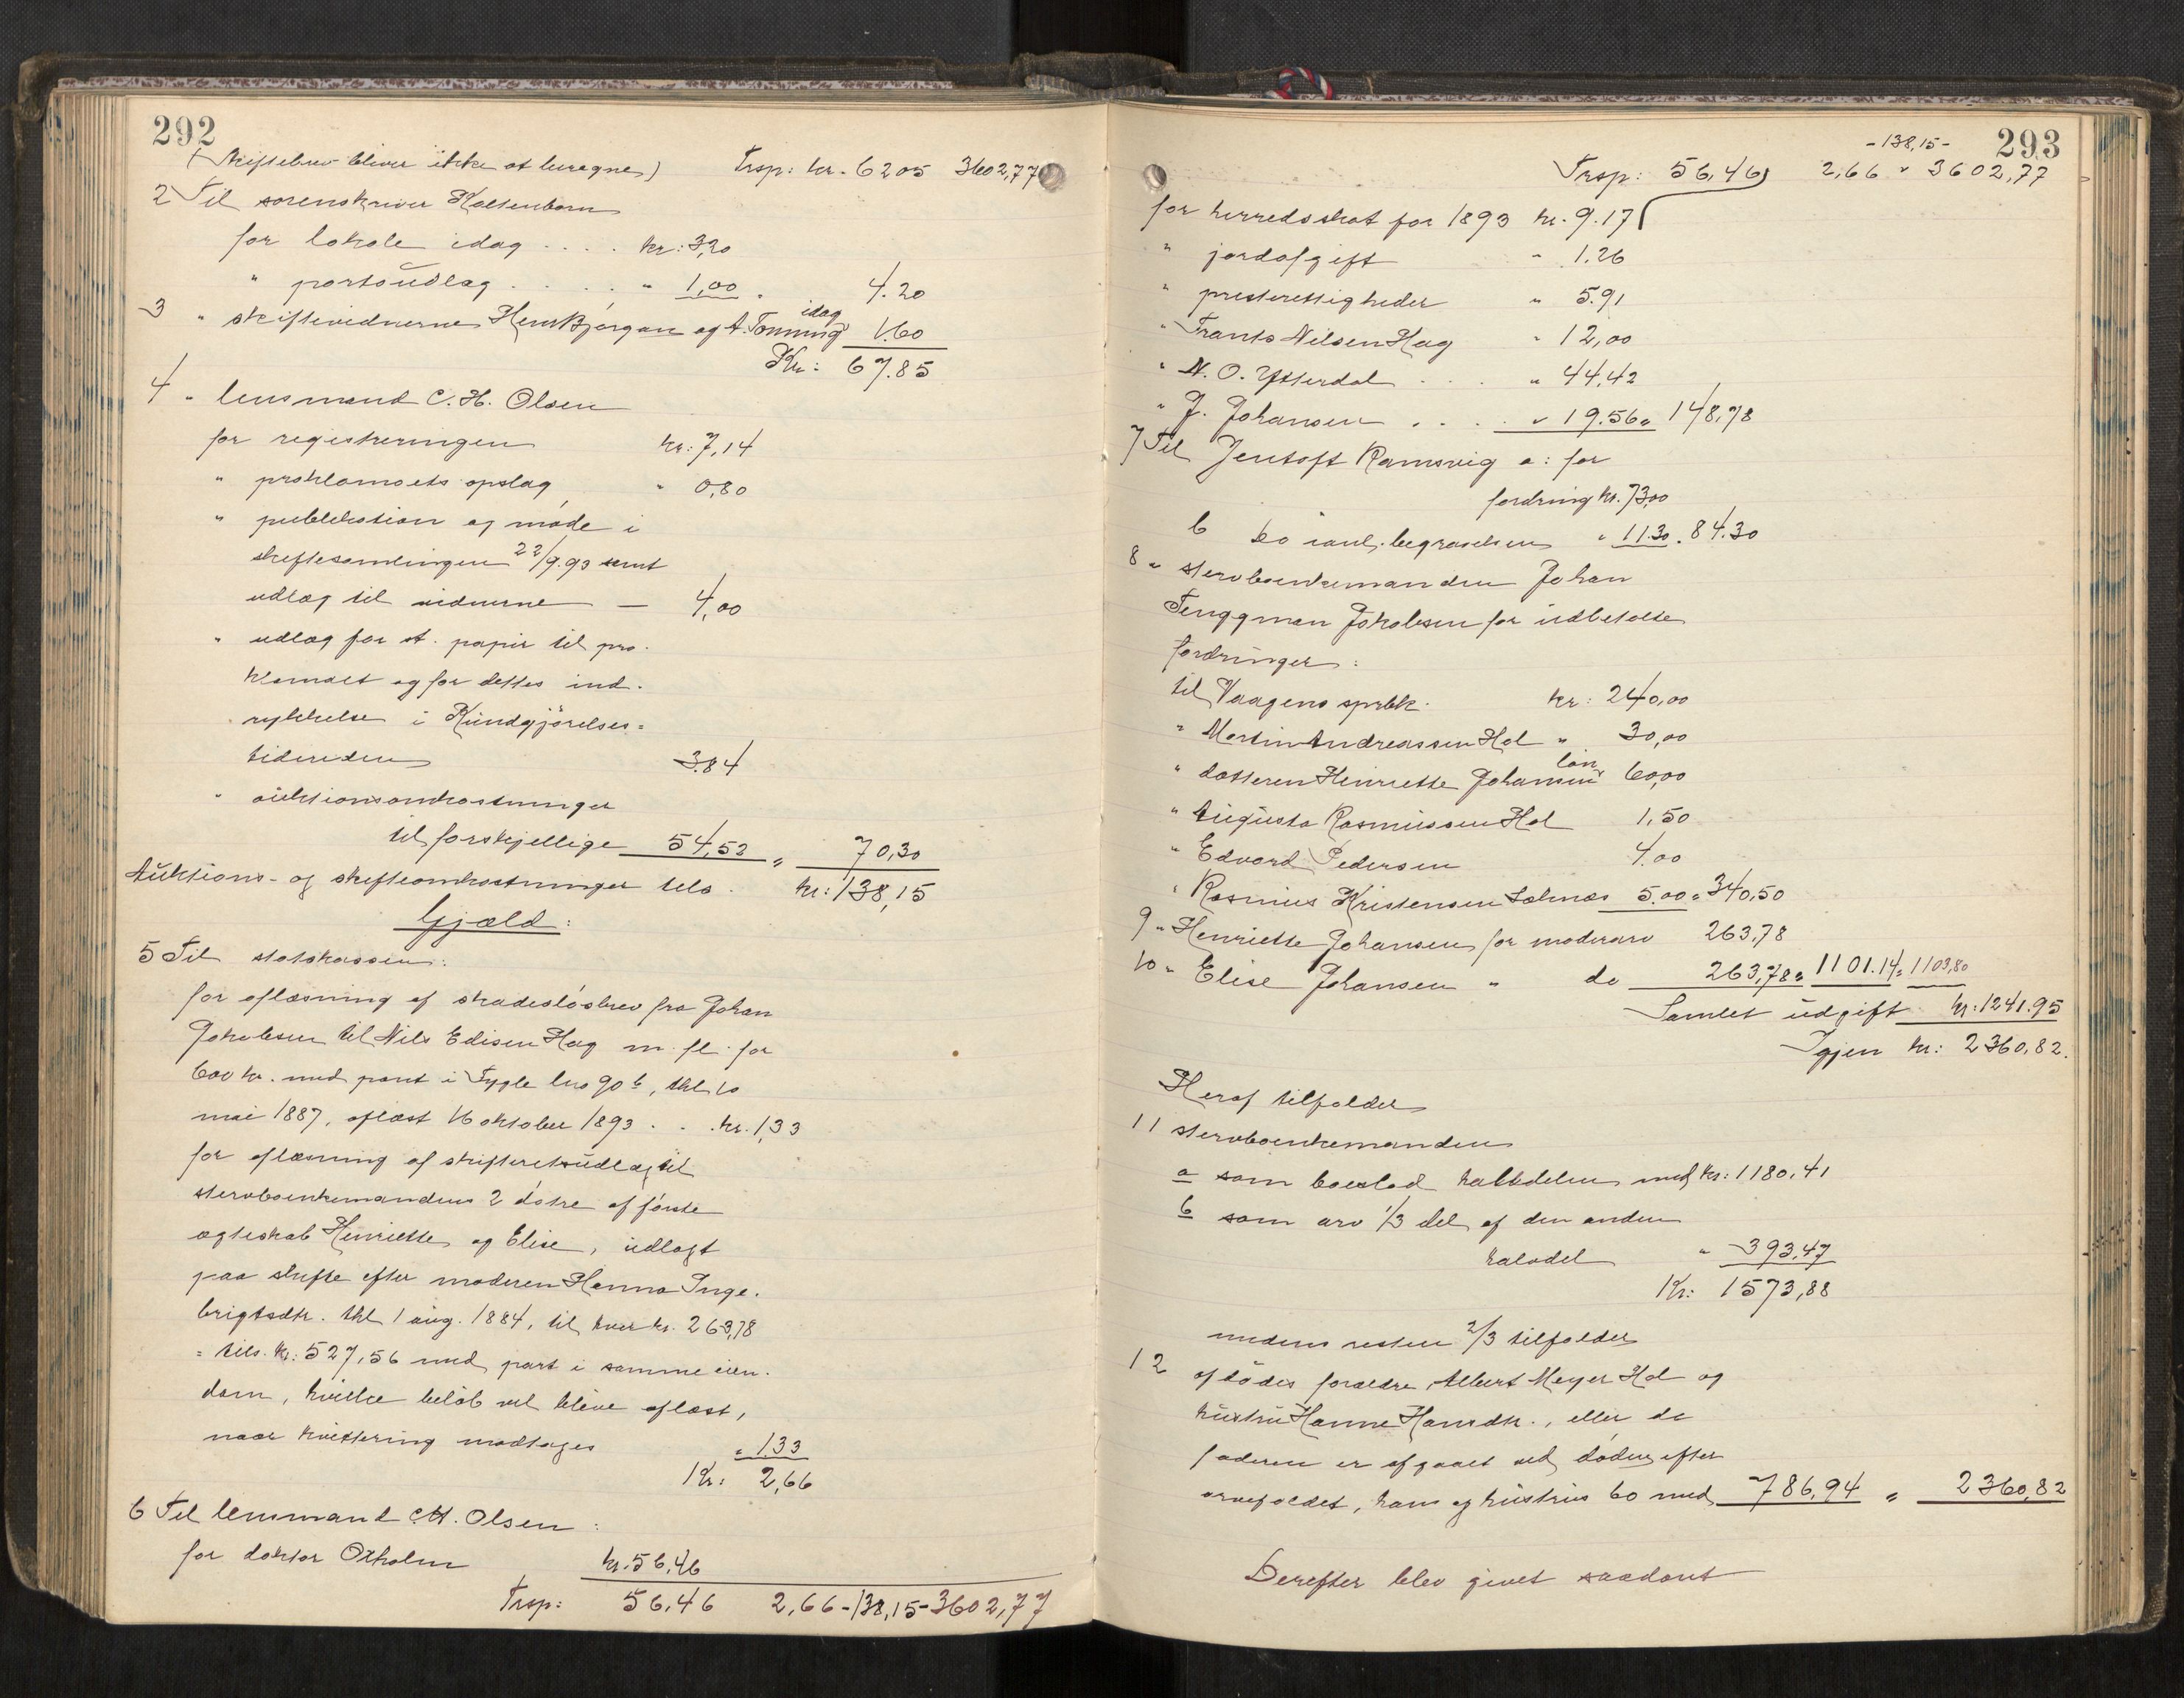 292
(Skiftebrev bliver ikke at beregne) Trsp: kr. 62 05 3602,77
2 Til sorenskriver Koltenborn
for lokale idag .... kr: 3,20
" portoudlag ..... " 1,00 . 4.20
3 " skiftevidnerne Hens Bjørgan og A. Tonning idag 1.60
Kr: 67.85
4 " lensmand C. H. Olsen
for registreringen kr: 7,14
" proklamaets opslag " 0,80
" publikation og møde i
skiftesamlingen 22/9.93 samt
udlæg til vidnerne — 4,00
" udlæg for st. papir til pro-
klamaet og for dettes ind-
rykkelse i Kundgjørelses=
tidenden 3.84
" auktionsomkostninger
til forskjellige 54,52 " 70,30
Auktions- og skifteomkostninger tils. kr: 138,15
Gjæld:
5 Til statskassen:
for aflæsning af skadesløsbrev fra Johan
Jakobsen til Nils Edisen Hag m. fl. for
600 kr. med pant i Tygle bno 90 b, thl. 10
mai 1887, aflæst 16 oktober 1893 . . . kr. 1,33
for aflæsning af skifteretsudlæg til
stervboenkemandens 2 døtre af første
ægteskab Henriette og Elise, udlagt
paa skifte efter moderen Hanna Inge-
brigtsdtr. thl. 1 aug. 1884, til hver kr. 263,78
= tils. kr: 527,56 med pant i samme eien-
dom, hvilke beløb vil blive aflæst,
naar kvittering modtages " 1.33
Kr: 2,66
6 Til lensmand C.H. Olsen:
for doktor Oxholm kr. 56,46
Trsp: 56.46 2,66-138,15-3602,77
293
-138,15-
Trsp: 56,46 2,66 " 3602,77
for herredsskat for 1893 kr. 9.17
" jordafgift " 1.26
" presterettigheder " 5.91
" Frants Nilsen Hag " 12,00
" N. O. Ytterdal . . . " 44,42
" J. Johansen . . . . " 19.56 " 148,78
7 Til Jentoft Ramsvig a: for
fordring kr. 73,00
b do i anl. begravelsen " 11.30 . 84.30
8 " stervboenkemanden Johan
Tenggman Jakobsen for udbetalte
fordringer:
til Vaagens sprbk. kr: 240,00
" Martin Andreassen Hol " 30,00
" datteren Henriette Johansen løn 60,00
" Augusta Rasmussen Hol 1,50
" Edvard Pedersen 4.00
" Rasmus Kristensen Solnæs 5.00 = 340,50
9 " Henriette Johansen for mødrearv 263,78
10 " Elise Johansen " do 263,78 = 1101.14 = 1103,80
Samlet udgift kr: 1241.95
Igjen kr: 2360,82.
Heraf tilfalder
11 stervboenkemanden
a som boeslod halvdelen med kr: 1180,41
b som arv 1/3 del af den anden
halvdel " 393.47
Kr: 1573,88
medens resten 2/3 tilfalder
12 afdødes forældre, Albert Meyer Hol og
hustru Hanne Hansdtr., eller, da
faderen er afgaaet ved døden efter
arvefaldet, hans og hustrus bo med 786,94 = 2360,82
Derefter blev givet saadant